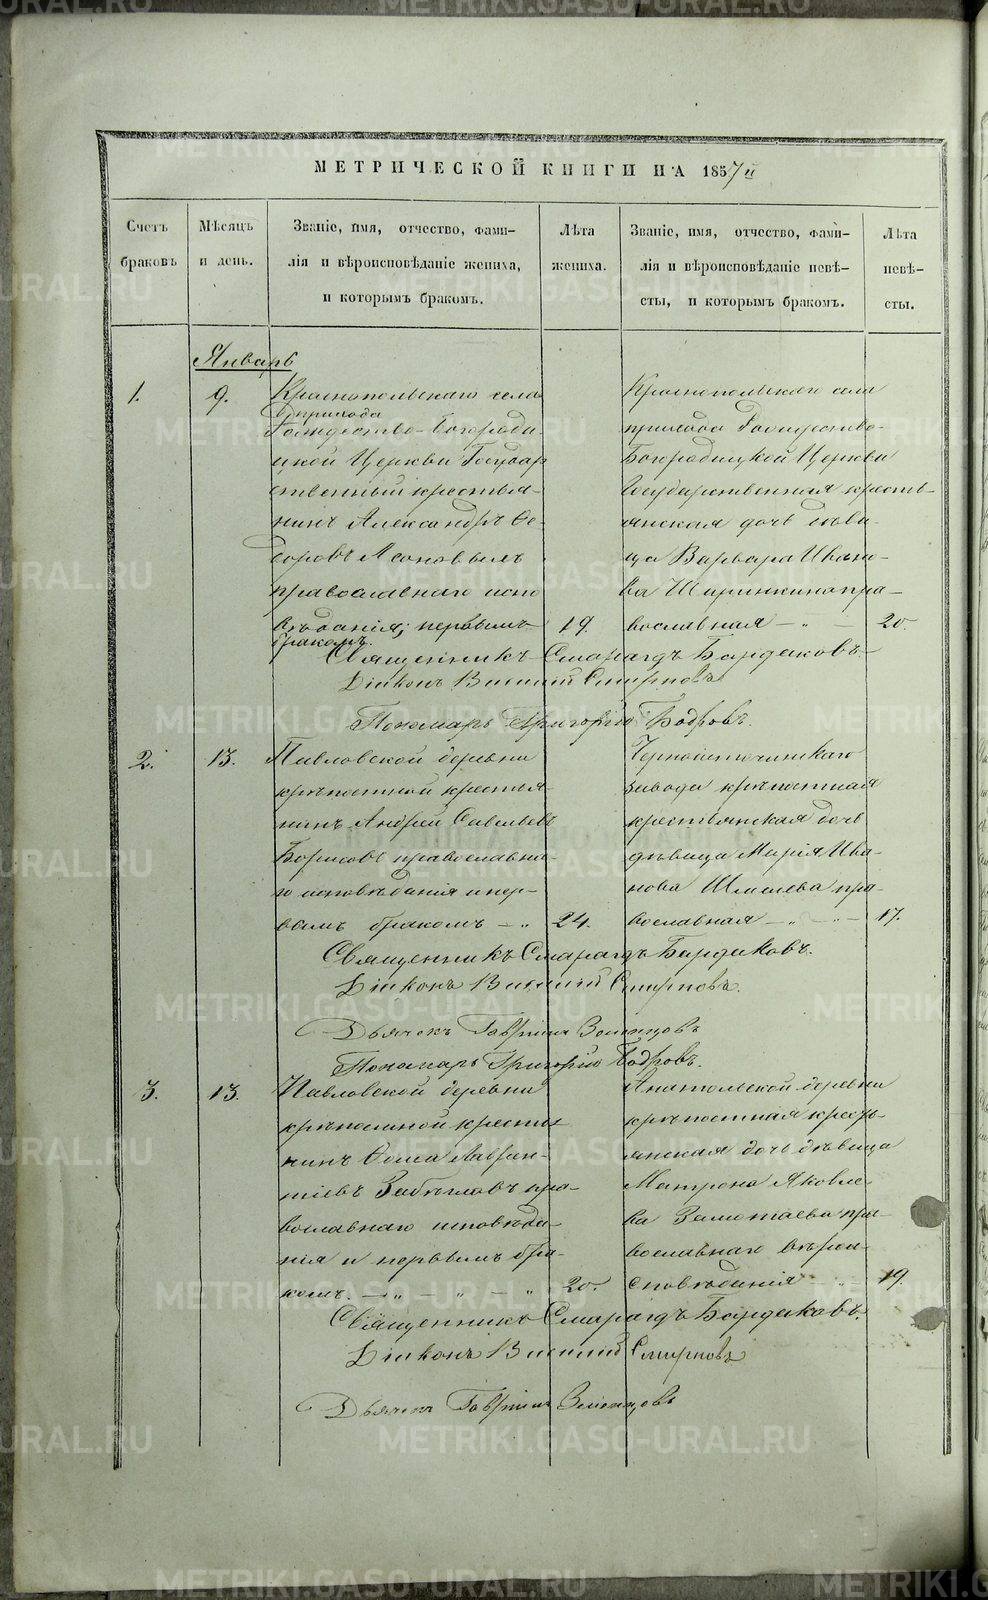 МЕТРИЧЕСКОЙ КНИГИ НА 1857й
Счетъ браковъ
Мѣсяцъ и день.
Званіе, имя, отчество, фами-
лія и вѣроисповѣданіе жениха,
и которымъ бракомъ.
Лѣта жениха.
Званіе, имя, отчество, фами-
лія и вѣроисповѣданіе невѣ-
сты, и которымъ бракомъ.
Лѣта невѣ-
сты.
Январь
1.
9.
Краснопольскаго села
прихода
Рождество-Богороди-
цкой Церкви Государ
ственный крестья-
нинъ Александръ Ѳе-
доровъ
православнаго испо
вѣданія; первымъ
бракомъ.
19.
Краснопольскаго села
прихода Рождество-
Богородицкой Церкви
Государственная кресть-
янская дочь дѣви-
ца Варвара Ивано-
ва пра-
вославная - „ -
20.
Священникъ Смарагдъ Бардаковъ.
Діаконъ Василій Смирновъ
Пономарь Григорій Бодровъ.
2.
13.
Павловской деревни
крѣпостной крестья-
нинъ Андрей Савельевъ
Борисовъ православна-
го исповѣданія и пер-
вымъ бракомъ - „
24.
Черноисточинскаго
завода крѣпостная
крестьянская дочь
дѣвица Марія Ива-
нова Шмелева пра-
вославная - „ - -
17.
Священникъ Смарагдъ Бардаковъ.
Діаконъ Василій Смирновъ.
Дьячекъ Гавріилъ
Пономарь Григорій Бодровъ.
3.
13.
Павловской деревни
крѣпостной крестья
нинъ Ѳома Лаврен-
тіевъ Забѣгловъ пра-
вославнаго исповѣда-
нія и первымъ бра-
комъ. - „ - „ - „
20.
Анатольской деревни
крѣпостная кресть-
янская дочь дѣвица
Матрона Яковле-
ва Замотаева пра-
вославнаго вѣрои-
сповѣданія - -
19.
Священникъ Смарагдъ Бардаковъ.
Діаконъ Василій Смирновъ
Дьячекъ Гавріилъ
METRIKI.GASO-URAL.RU